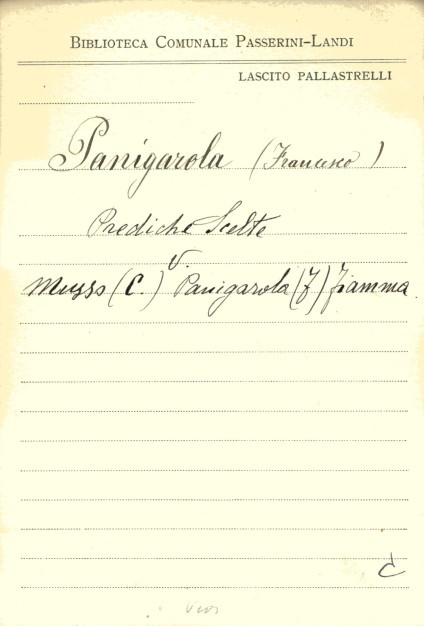 BIBLIOTECA COMUNALE PASSERINI-LANDI
LASCITO PALLASTRELLI
Panigarola (Francesco)
Prediche Scelte
V.
Musso (C.) Panigarola (F) Fiamma